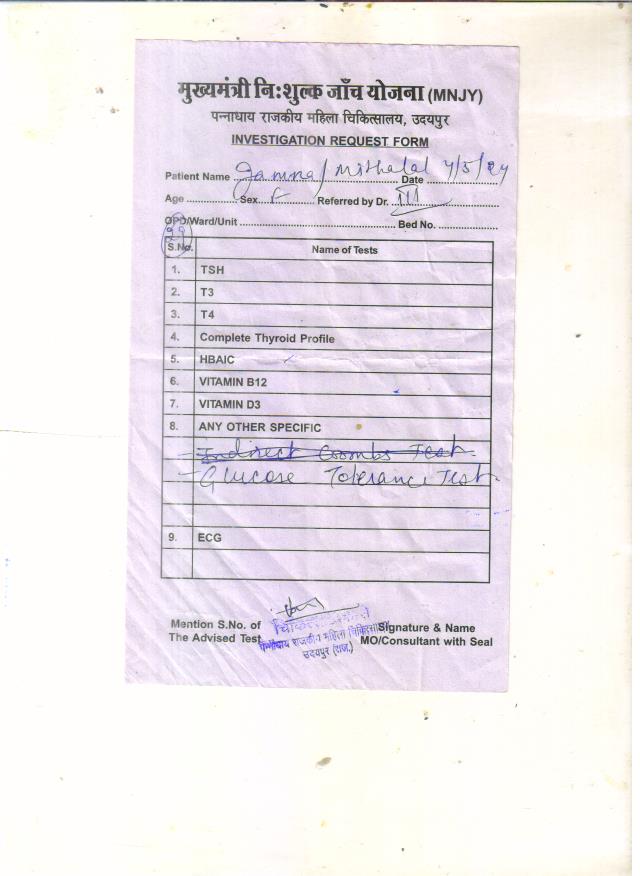 मुख्यमंत्री निःशुल्क जाँच योजना (MNJY)
पन्नाधाय राजकीय महिला चिकित्सालय, उदयपुर
INVESTIGATION REQUEST FORM
Patient Name Jamna/Mithalal Date 7/5/24
Age Sex F Referred by Dr. III
OPD/Ward/Unit Bed No.
S.No. Name of Tests
1. TSH
2. T3
3. T4
4. Complete Thyroid Profile
5. HBAIC
6. VITAMIN B12
7. VITAMIN D3
8. ANY OTHER SPECIFIC
- Indirect Coombs Test
- Glucose Tolerance Test
9. ECG
Mention S.No. of Signature & Name
The Advised Test MO/Consultant with Seal
पन्नाधाय राजकीय महिला चिकित्सालय
उदयपुर (राज.)